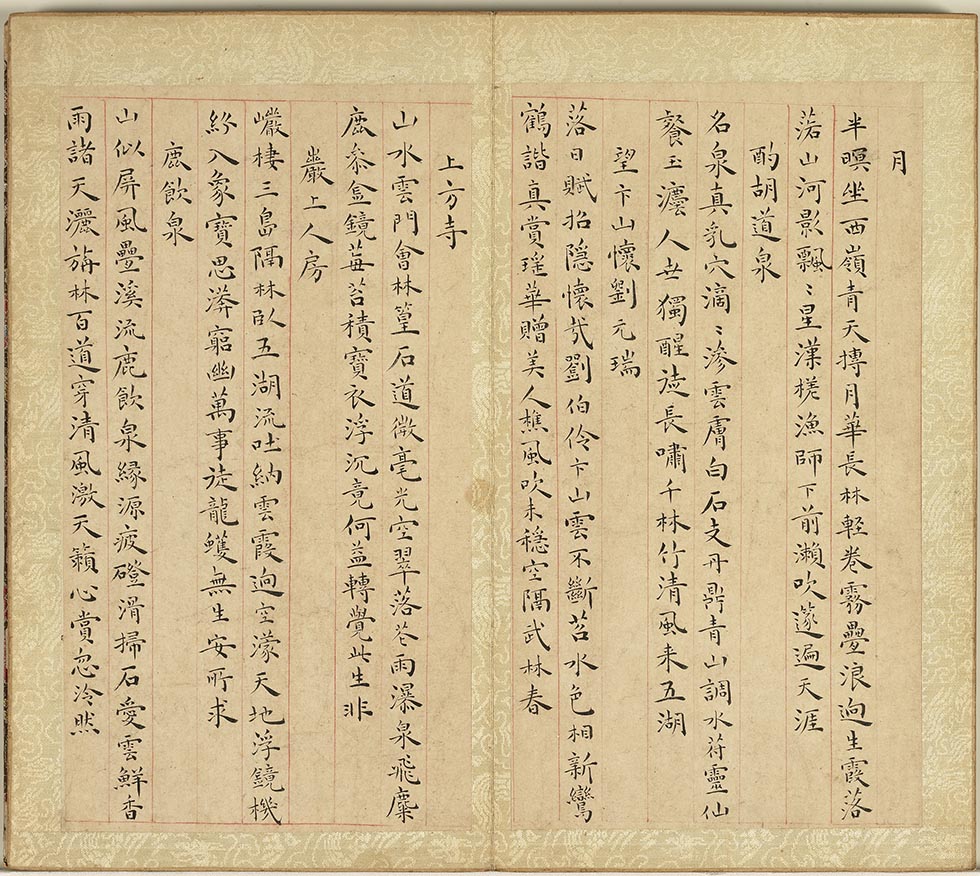 月
半暝坐西嶺青天摶月華長林輕卷霧疊浪逈生霞落
落山河影飄〻星漢槎漁師下前瀨吹邃遍天涯
酌胡道泉
名泉真乳穴滴〻滲雲膚白石支丹鼎青山調水符靈仙
餐玉瀘人世獨醒徒長嘯千林竹清風来五湖
望卞山懷劉元瑞
落日賦招隱懷哉劉伯伶卞山雲不斷苕水色相新鸞
鶴諧真賞瑤華贈美人樵風吹未穩空隔武林春
上方寺
山水雲門會林篁石道微毫光空翠落苍雨瀑泉飛麋
鹿叅金鏡莓苔積寶衣浮沉竟何益轉覺此生非
巖上人房
巖棲三島隔林卧五湖流吐納雲霞逈空濛天地浮鏡機
紗入象寶思漭窮幽萬事徒龍蠖無生安所求
鹿飲泉
山似屏風疊溪流鹿飲泉緣源疲磴滑掃石愛雲鮮香
雨諸天灑旃林百道穿清風激天籟心賞忽泠然